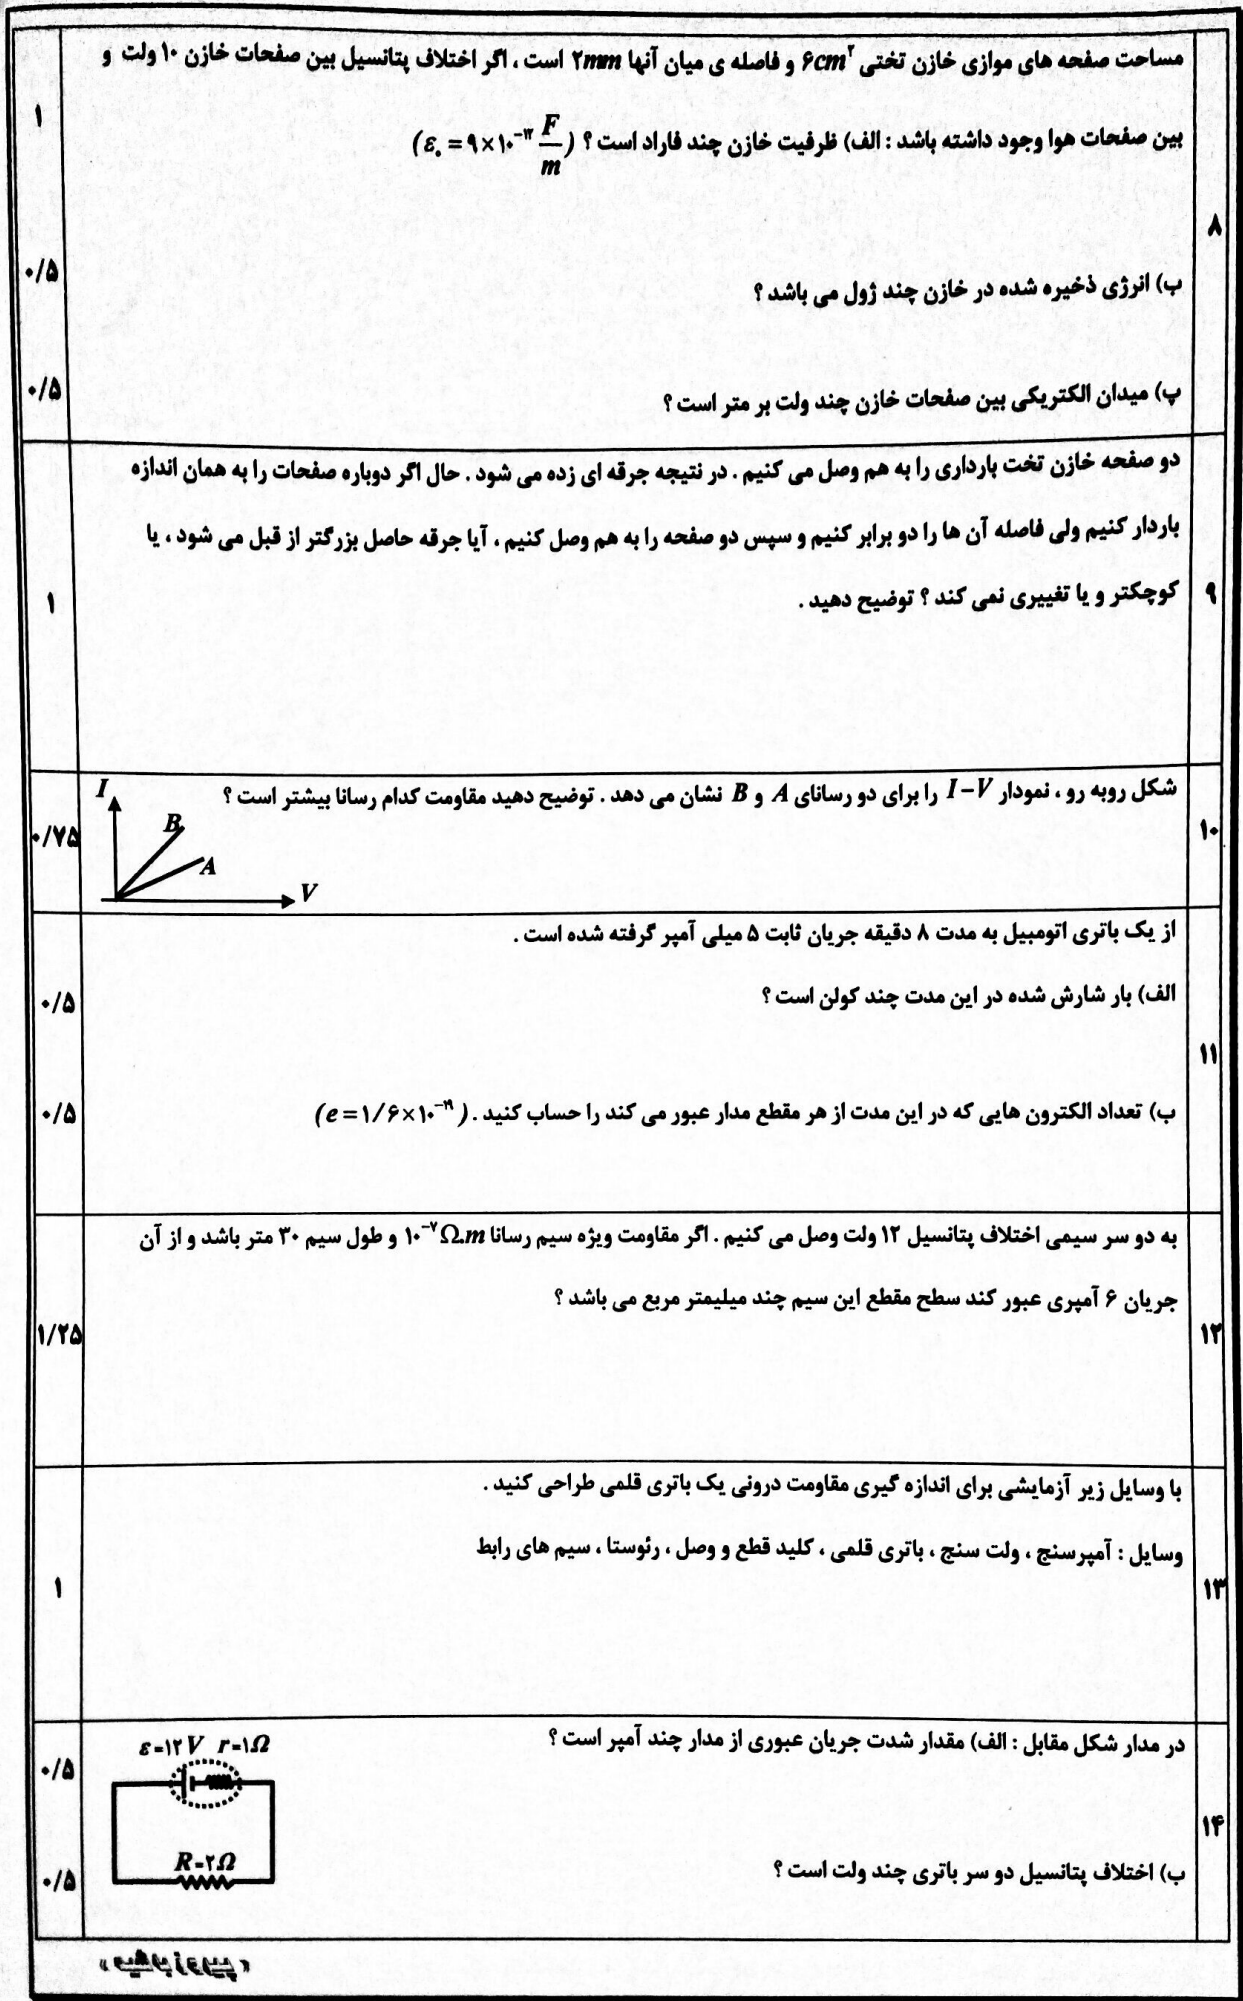 مساحت صفحه های موازی خازن تختی ۶cm۲ و فاصله ی میان آنها ۲mm است ، اگر اختلاف پتانسیل بین صفحات خازن ۱۰ ولت و
بین صفحات هوا وجود داشته باشد : الف) ظرفیت خازن چند فاراد است ؟ (ε۰ = ۹×۱۰⁻¹² F/m)
۱
۸
ب) انرژی ذخیره شده در خازن چند ژول می باشد ؟
۰/۵
پ) میدان الکتریکی بین صفحات خازن چند ولت بر متر است ؟
۰/۵
دو صفحه خازن تخت بارداری را به هم وصل می کنیم . در نتیجه جرقه ای زده می شود . حال اگر دوباره صفحات را به همان اندازه
باردار کنیم ولی فاصله آن ها را دو برابر کنیم و سپس دو صفحه را به هم وصل کنیم ، آیا جرقه حاصل بزرگتر از قبل می شود ، یا
۹
کوچکتر و یا تغییری نمی کند ؟ توضیح دهید .
۱
شکل روبه رو ، نمودار I – V را برای دو رسانای A و B نشان می دهد . توضیح دهید مقاومت کدام رسانا بیشتر است ؟
۱۰
I
B
A
V
۰/۷۵
از یک باتری اتومبیل به مدت ۸ دقیقه جریان ثابت ۵ میلی آمپر گرفته شده است .
الف) بار شارش شده در این مدت چند کولن است ؟
۰/۵
۱۱
ب) تعداد الکترون هایی که در این مدت از هر مقطع مدار عبور می کند را حساب کنید . (e = ۱/۶×۱۰⁻¹⁹)
۰/۵
به دو سر سیمی اختلاف پتانسیل ۱۲ ولت وصل می کنیم . اگر مقاومت ویژه سیم رسانا ۱۰⁻⁷ Ω.m و طول سیم ۳۰ متر باشد و از آن
جریان ۶ آمپری عبور کند سطح مقطع این سیم چند میلیمتر مربع می باشد ؟
۱۲
۱/۲۵
با وسایل زیر آزمایشی برای اندازه گیری مقاومت درونی یک باتری قلمی طراحی کنید .
وسایل : آمپرسنج ، ولت سنج ، باتری قلمی ، کلید قطع و وصل ، رئوستا ، سیم های رابط
۱۳
۱
در مدار شکل مقابل : الف) مقدار شدت جریان عبوری از مدار چند آمپر است ؟
ε=۱۲V r=۱Ω
۰/۵
۱۴
R=۲Ω
ب) اختلاف پتانسیل دو سر باتری چند ولت است ؟
۰/۵